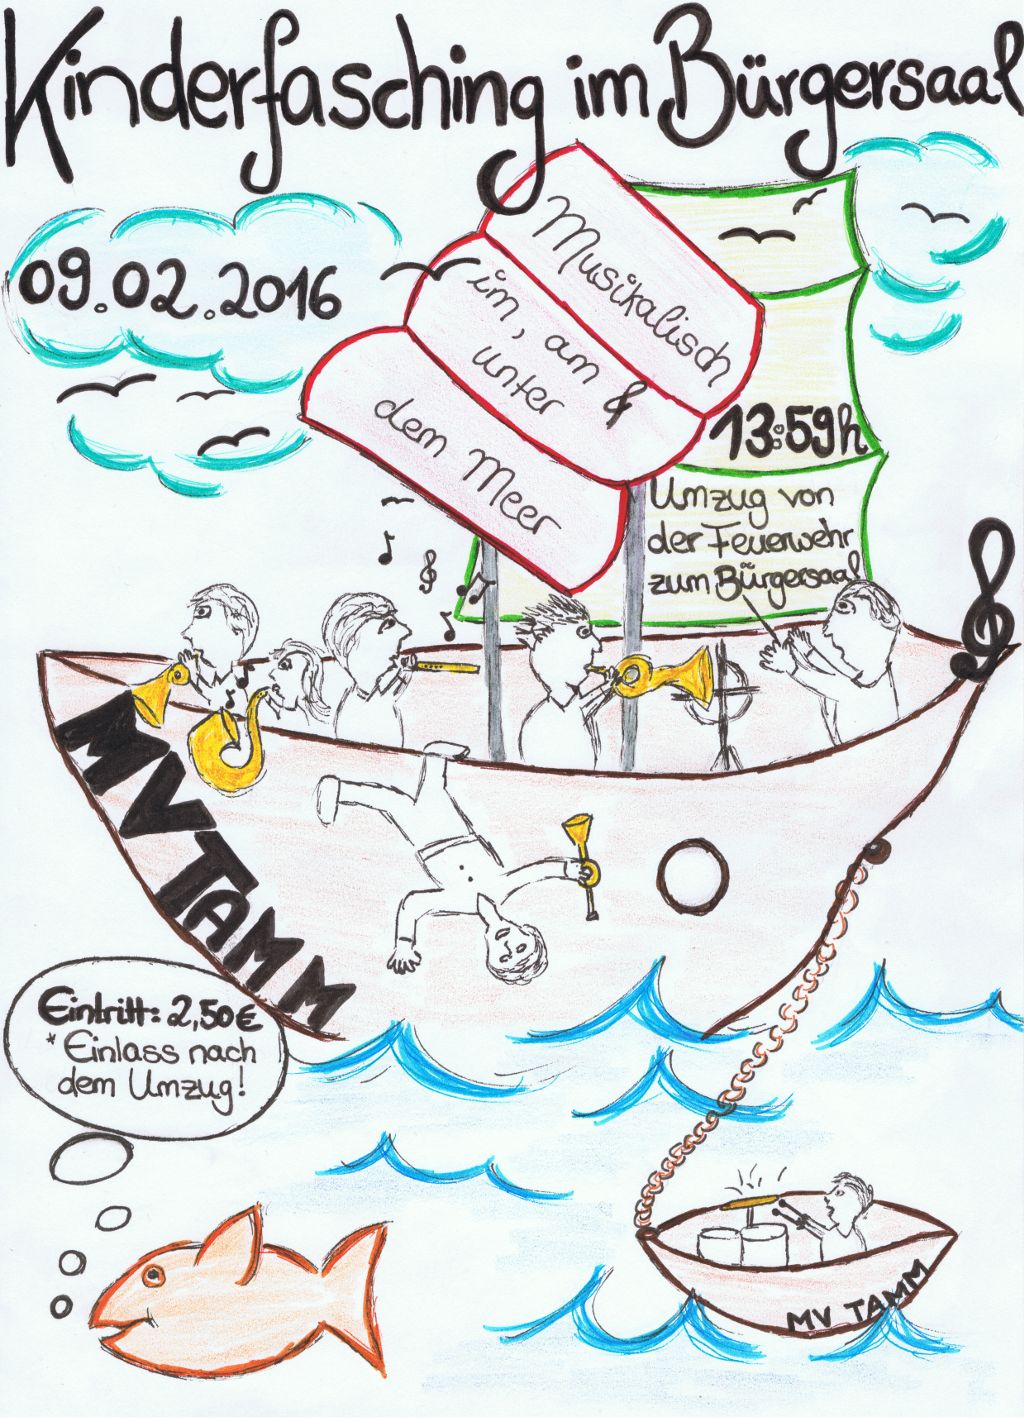 Kinderfasching im Bürgersaal
09.02.2016
Musikalisch
im, am &
unter
dem Meer
13:59h
Umzug von
der Feuerwehr
zum Bürgersaal
MV TAMM
Eintritt: 2,50€
*Einlass nach
dem Umzug!
MV TAMM